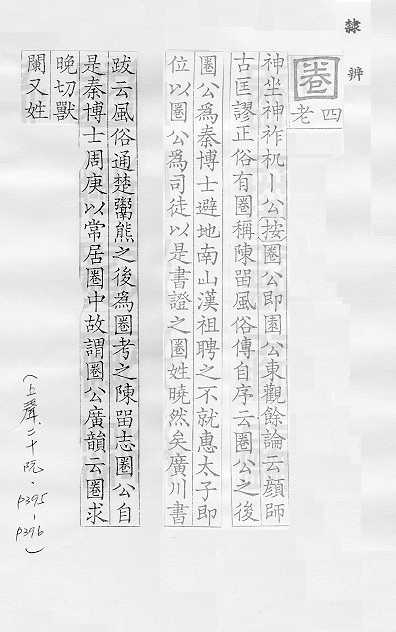 隸辨
圈
四老
神坐神祚机丨公按圈公即園公東觀餘論云顔師
古匡謬正俗有圈稱陳留風俗傳自序云圈公之後
圈公爲秦博士避地南山漢祖聘之不就惠太子即
位以圈公爲司徒以是書證之圈姓曉然矣廣川書
跋云風俗通楚鬻熊之後爲圈考之陳留志圈公自
是秦博士周庚以常居圈中故謂圈公廣韻云圈求
晚切獸
闌又姓
(上聲.二十阮.P395-P396)